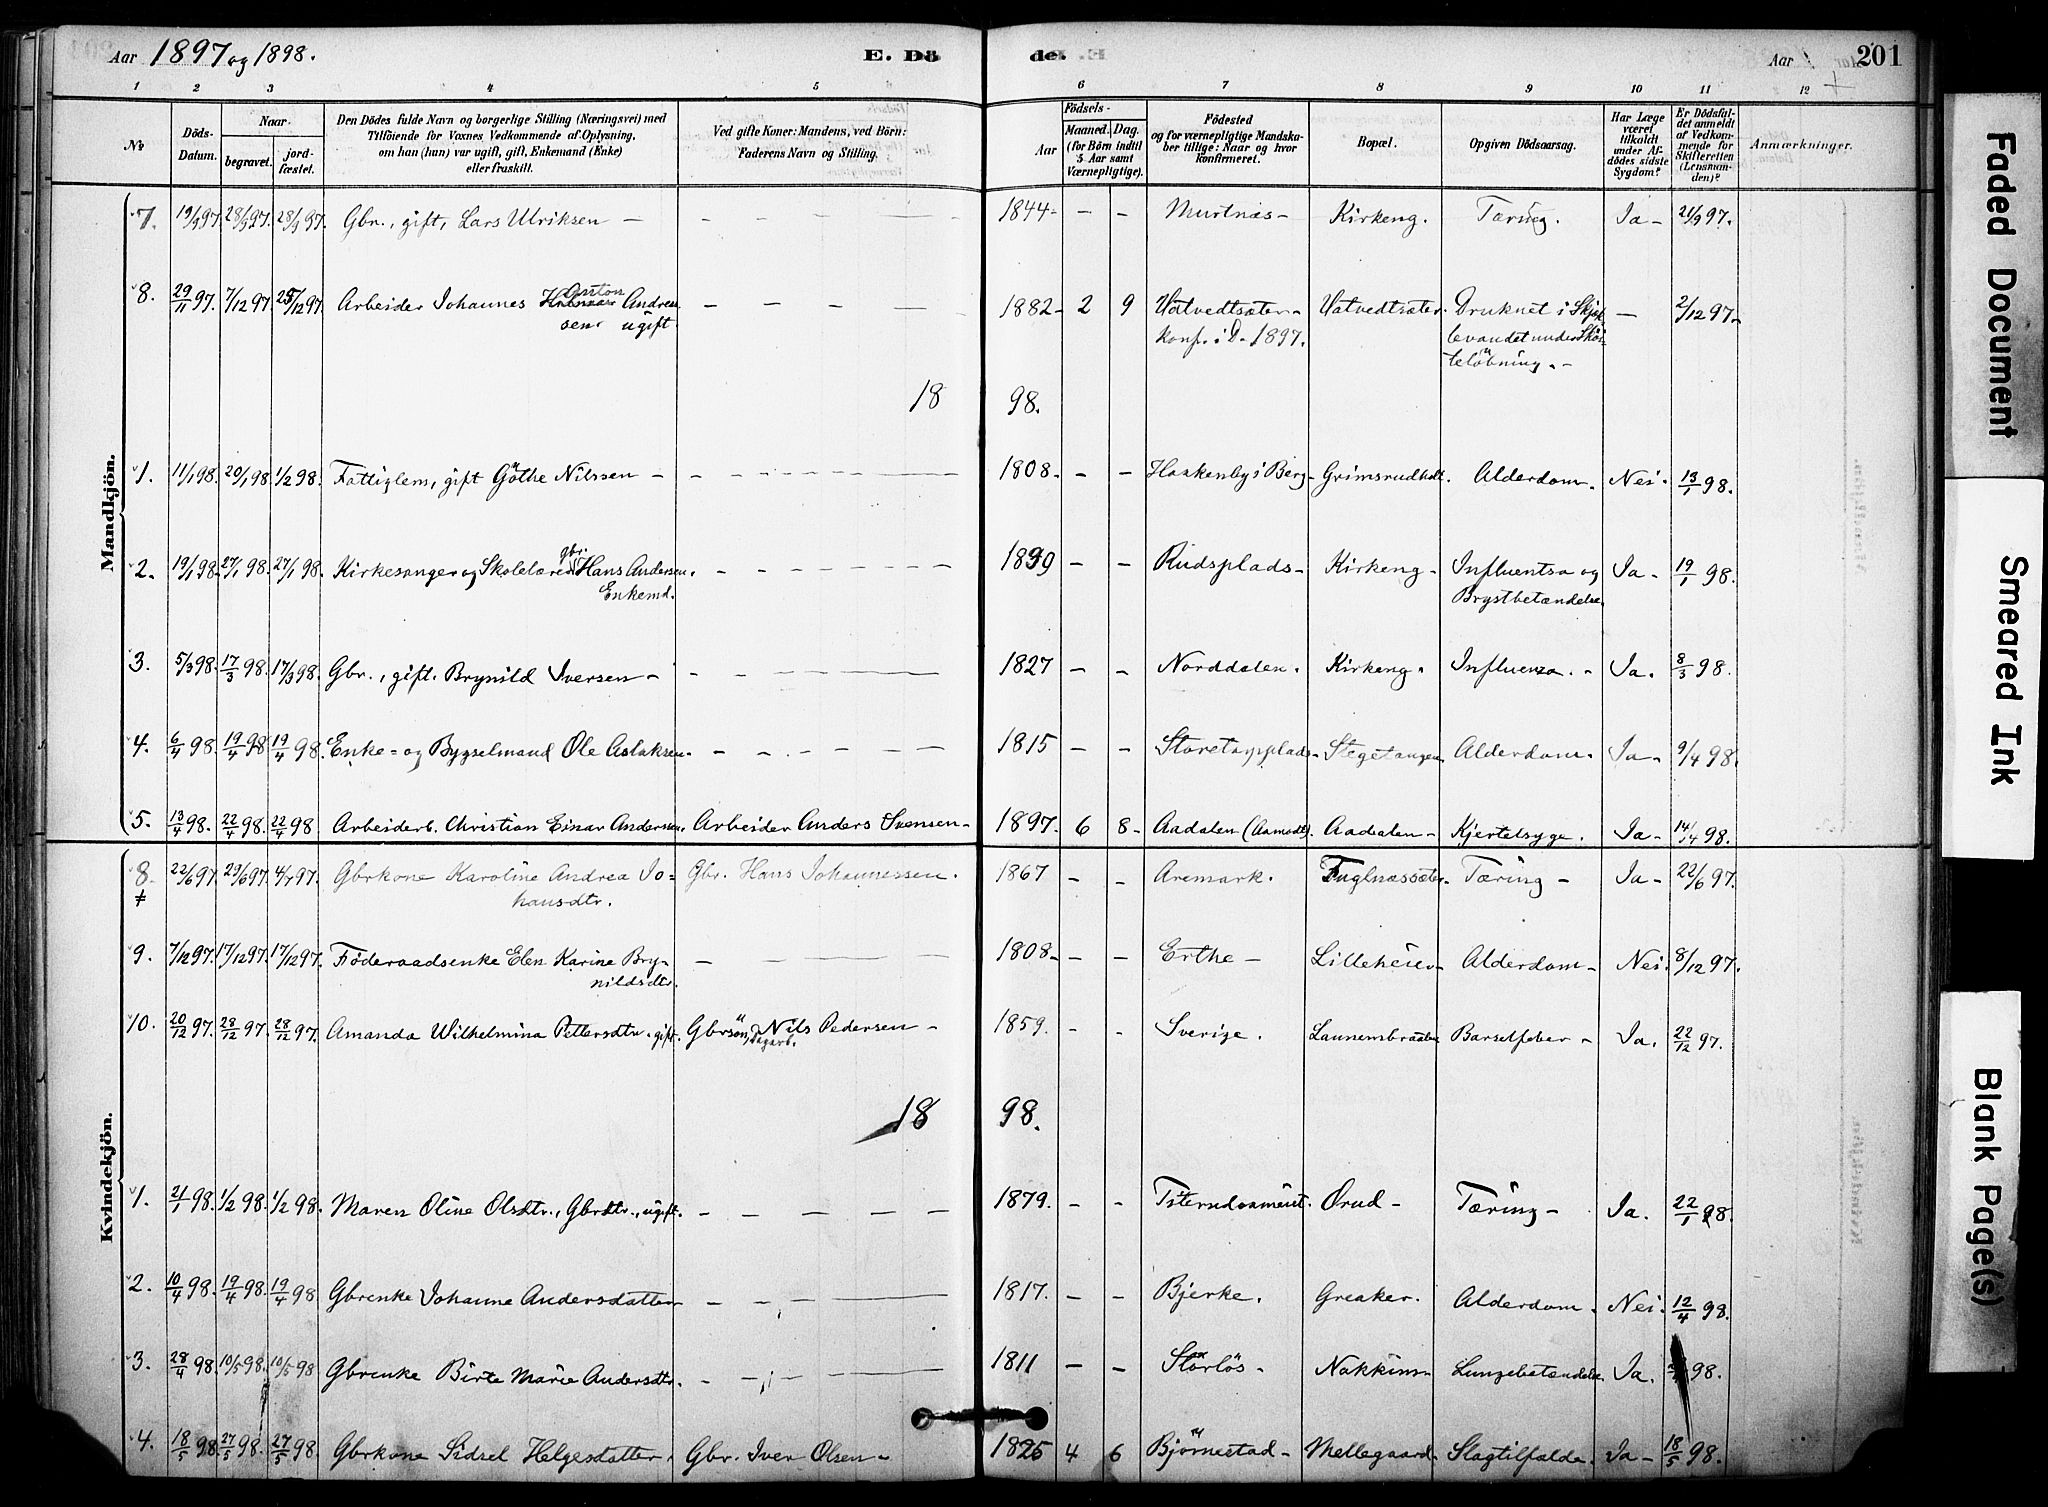 Aar 1897 og 1898.
E. Dö
de.
Aar
201
1 2 3 4 5 6 7 8 9 10 11 12
№
Döds-Datum.
Naar
begravet.
jordfæstet.
Den Dödes fulde Navn og borgerlige Stilling (Næringsvei) med
Tilföiende for Voxnes Vedkommende af Oplysning,
om han (hun) var ugift, gift, Enkemand (Enke)
eller fraskilt.
Ved gifte Koner: Mandens, ved Börn:
Faderens Navn og Stilling.
Födsels-
Aar
Maaned. Dag.
(for Börn indtil
5 Aar samt
Værnepligtige).
Födested
og for værnepligtige Mandska-
ber tillige: Naar og hvor
konfirmeret.
Bopæl.
Opgiven Dödsaarsag.
Har Læge
været
tilkaldt
under Af-
dödes sidste
Sygdom?
Er Dödsfal-
det anmeldt
af Vedkom-
mende for
Skifteretten
(Lensman-
den)?
Anmærkninger.
Mandkjön.
7. 19/9 97. 28/9 97. 28/9 97. Gbr., gift, Lars Ulriksen — — — — — — 1844 — — Murtnæs — Kirkeng. Tæring. Ja — 21/9 97.
8. 29/11 97. 7/12 97. 25/12 97. Arbeider Johannes Anton Andreasen ugift. — — — — 1882 — 2 9 Vatvedtsæter — konf. i D. 1897. Vatvedtsæter. Druknet i Skjæklevandet under Skøiteløbning. — — 2/12 97 —
18 98.
1. 11/1 98. 20/1 98. 1/2 98. Fattiglem, gift Göthe Nilssen — — — — — 1808 — — — Haakenby i Berg — Grimsrudholt. Alderdom. Nei. 13/1 98.
2. 19/1 98. 27/1 98. 27/1 98. Kirkesanger og Skolelærer gbr. Hans Andersen. Enkemd. — — — — 1839 — — Rudsplads — Kirkeng — Influentsa og Brystbetændelse. Ja — 19/1 98.
3. 5/3 98. 17/3 98. 17/3 98. Gbr., gift. Brynild Iversen — — — — — 1827 — — Norddalen. Kirkeng. Influenza. — Ja. 8/3 98.
4. 6/4 98. 19/4 98 19/4 98. Enke- og Bygselmand Ole Aslaksen — — — — — 1815 — — Storetorpplads — Stegetangen. Alderdom. Ja — 9/4 98.
5. 13/4 98. 22/4 98. 22/4 98 Arbeiderb. Christian Einar Andersen. Arbeider Anders Svensen — 1897. 6 8 — Aadalen (Aamodt). Aadalen — Kjertelsyge. Ja — 14/4 98.
Kvindekjön.
8. 22/6 97. 29/6 97. 4/7 97. Gbrkone Karoline Andrea Johansdtr. Gbr. Hans Johannessen. 1867 — — Aremark. Fuglnæssæter. Tæring — Ja — 22/6 97.
9. 7/12 97. 17/12 97. 17/12 97. Føderaadsenke Elen Karine Brynildsdtr. — — — — 1808 — — — Erthe — Lilleheier — Alderdom — Nei. 8/12 97.
10. 20/12 97. 28/12 97. 28/12 97. Amanda Wilhelmina Pettersdtr. gift. Gbrsön, Dagarb. Nils Pedersen — 1859. — — Sverige. Launensbraaten Barselfeber — Ja. 22/12 97.
18 98.
1. 21/1 98. 1/2 98. 1/2 98. Maren Oline Olsdtr., Gbrdtr., ugift. — — — — — 1879. — — Ørud — Tæring — Ja. 22/1 98.
2. 10/4 98. 19/4 98. 19/4 98 Gbrenke Johanne Andersdatter — — — — 1817. — — Bjerke. Greaker. Alderdom. Nei. 12/4 98.
3. 28/4 98. 10/5 98. 10/5 98 Gbrenke Birte Marie Andersdtr. — — — — 1811 — — Storlös — Nakkim — Lungebetændelse. Ja. 98.
4. 18/5 98. 27/5 98. 27/5 98. Gbrkone Sidsel Helgesdatter. Gbr. Iver Olsen — 1825 4 6 Bjørnestad — Mellegaard — Slagtilfælde. Ja — 18/5 98.
Faded Document
Smeared Ink
Blank Page(s)